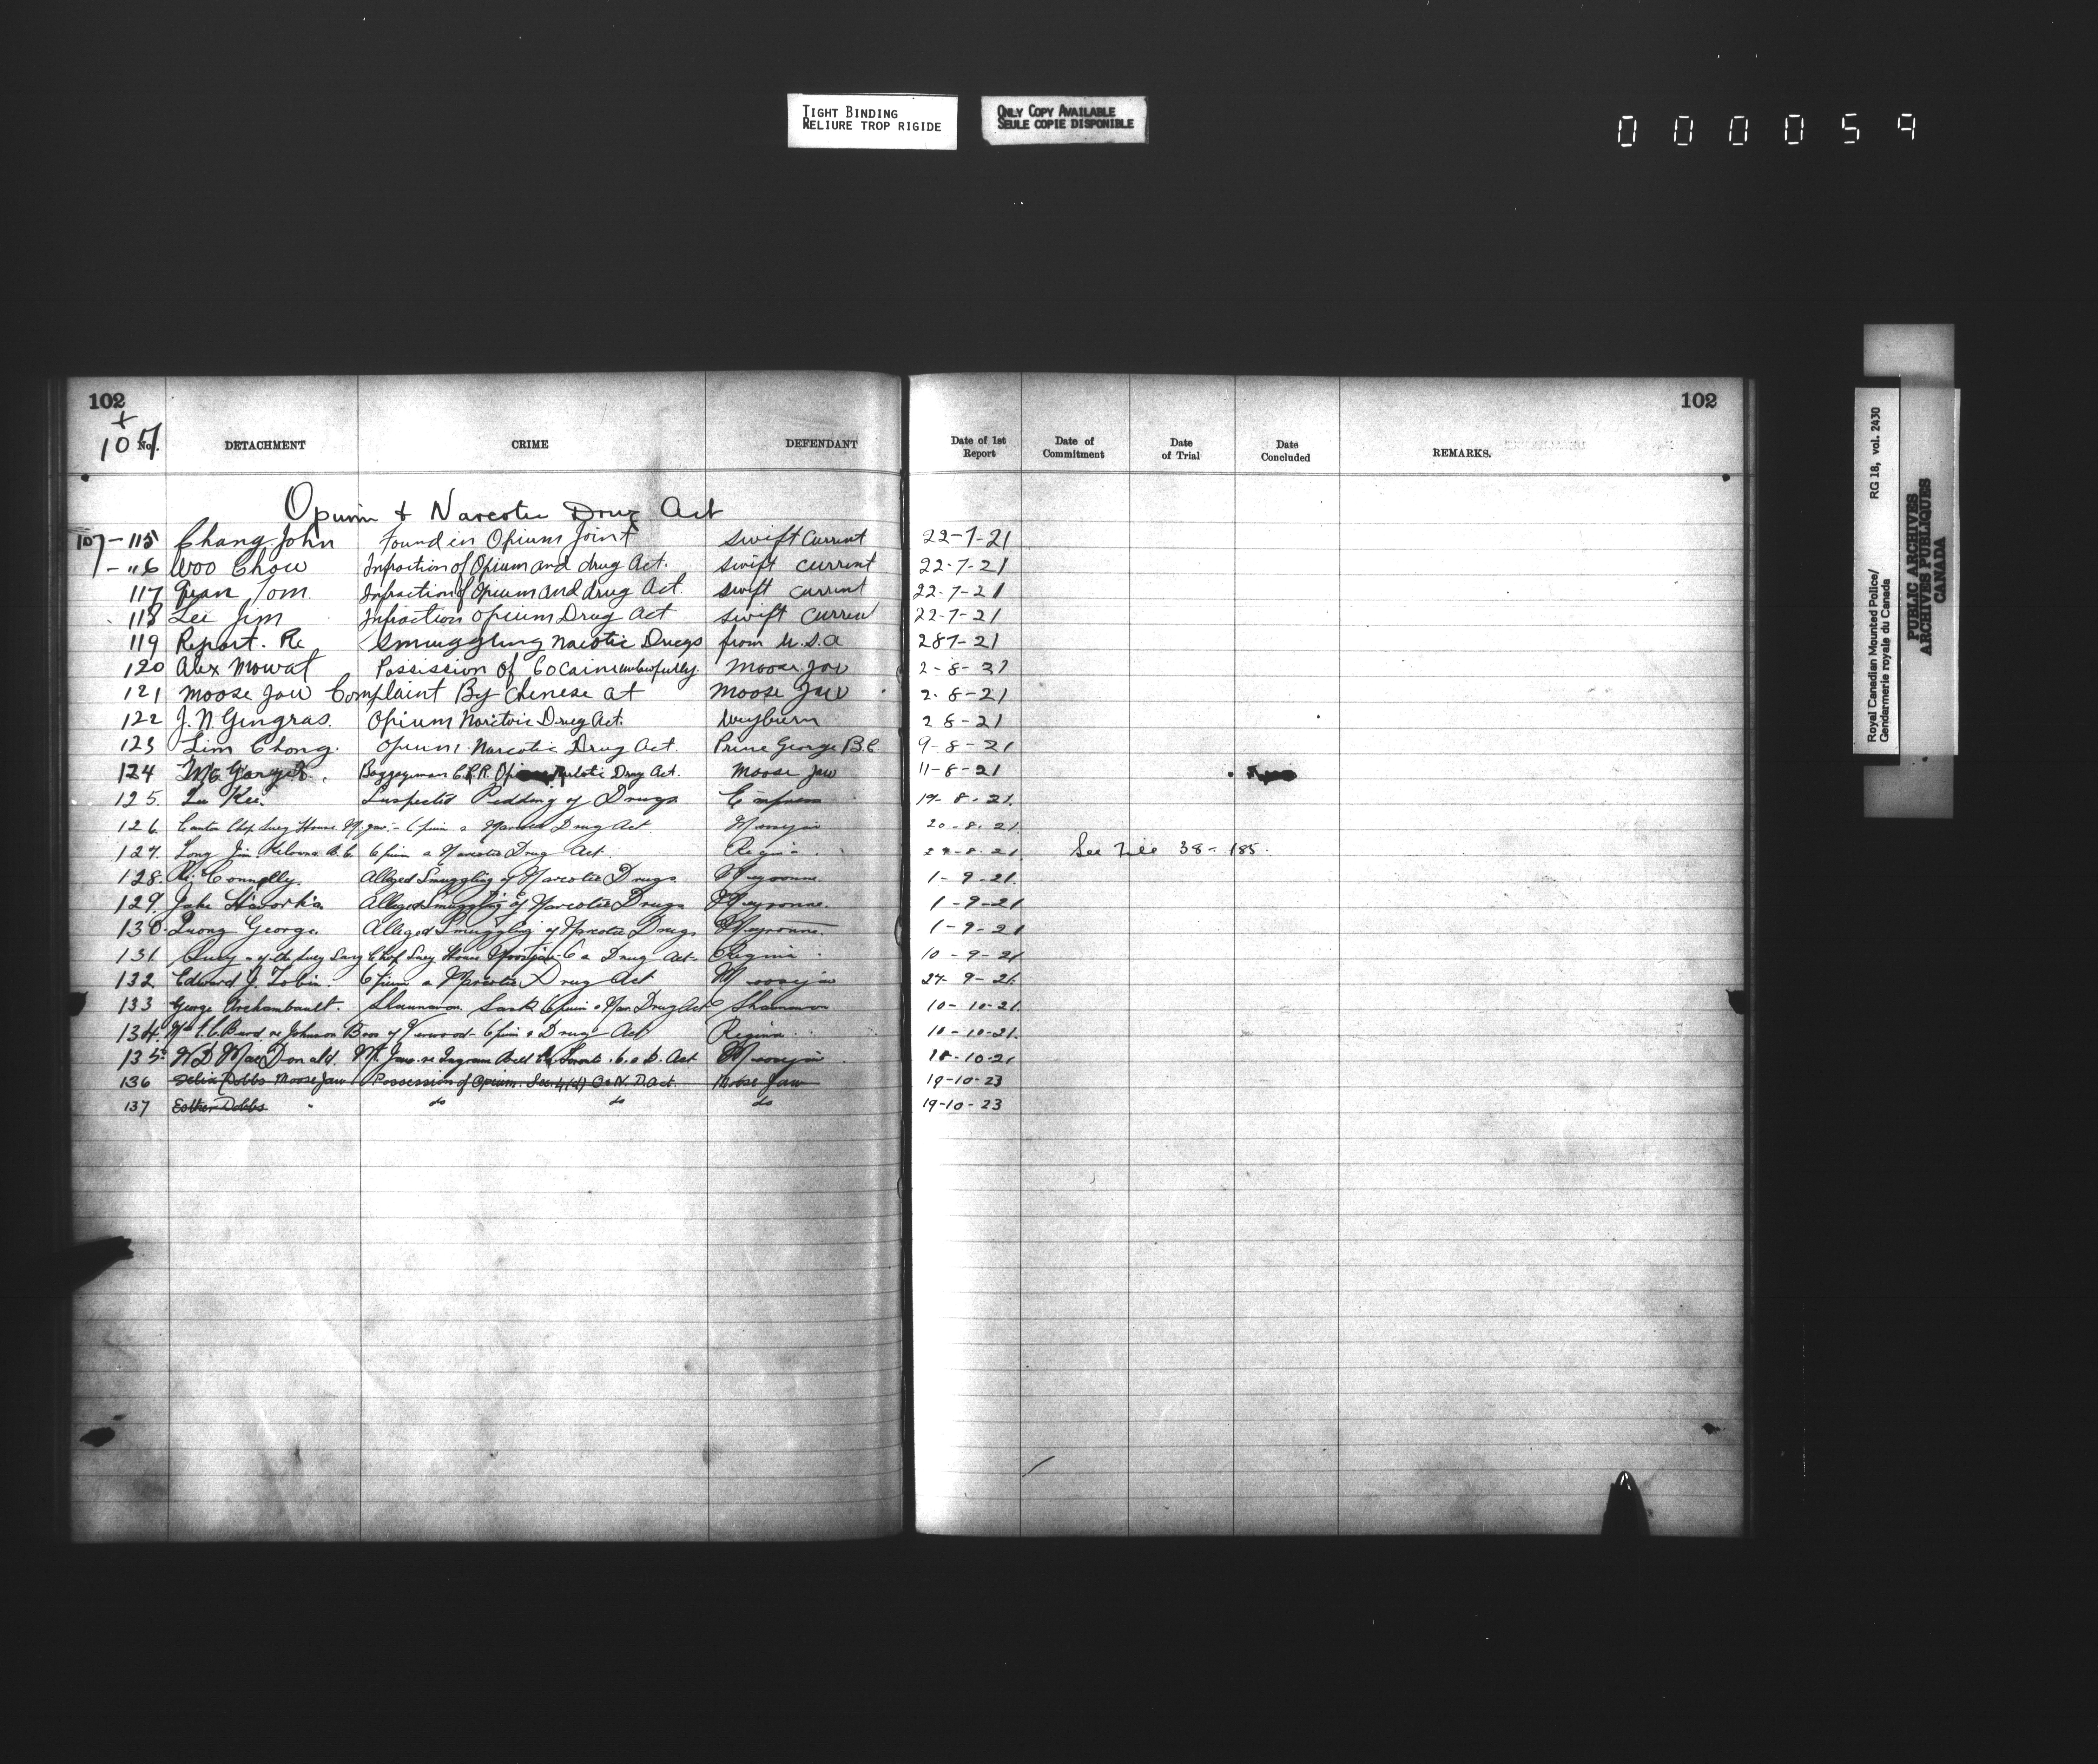 TIGHT BINDING
RELIURE TROP RIGIDE
ONLY COPY AVAILABLE
SEULE COPIE DISPONIBLE
000059
102
102
107
No. DETACHMENT CRIME DEFENDANT Date of 1st Report Date of Commitment Date of Trial Date Concluded REMARKS.
Opium & Narcotic Drug Act
107-115 Chang John Found in Opium Joint Swift Current 22-7-21
-116 Woo Chow Infraction of Opium and drug Act. Swift Current 22-7-21
117 Tom Infraction of Opium and drug Act. Swift Current 22-7-21
118 Lee Jim Infraction Opium Drug Act Swift Curren 22-7-21
119 Report. Re Smuggling Narotic Drugs from U.S.A 287-21
120 Alex Mowat Possission Of Cocaine unlawfully. Moose Jaw 2-8-21
121 Moose Jaw Complaint By Chinese at Moose Jaw 2-8-21
122 J. N. Gingras. Opium Narctoic Drug Act. Weyburn 2 8-21
123 Lim Chong. Opium Narcotic Drug Act. Prince George B.C. 9-8-21
124 Baggageman C.P.R. Drug Act. Moose Jaw 11-8-21
125. Lu Kee. Suspected Peddling of Drugs Empress 19-8-21.
126. Canton Chop Suey House M. Jaw - Opium & Narcotic Drug Act Moosejaw 20-8-21.
127. Long Jim. Kelowna B.C. Opium & Narcotic Drug Act. Regina 29-8-21 See File 38-185.
128. Re: Connolly. Alleged Smuggling of Narcotic Drugs Meyronne. 1-9-21.
129. Jake Alleged Smuggling of Narcotic Drugs Meyronne. 1-9-21
130. George. Alleged Smuggling of Narcotic Drugs Meyronne. 1-9-21
131. Chop Suey House Moosejaw - O & Drug Act. Regina 10-9-21
132. Edward J. Tobin. Opium & Narcotic Drug Act Moosejaw 27-9-21.
133 George Archambault. Shaunavon Sask Opium & Nar. Drug Act Shaunavon 10-10-21.
134. re Johnson Bros of Opium & Drug Act Regina 10-10-21.
135. W D MacDonald. M. Jaw. re O. & D. Act Moosejaw 18-10-21
136 Dobbs Moose Jaw Possession of Opium. Sec. 4(d) O&N.D. Act. Moose Jaw 19-10-23
137 Esther Dobbs " do do do 19-10-23
Royal Canadian Mounted Police/ RG 18, vol. 2430
Gendarmerie royale du Canada
PUBLIC ARCHIVES
ARCHIVES PUBLIQUES
CANADA